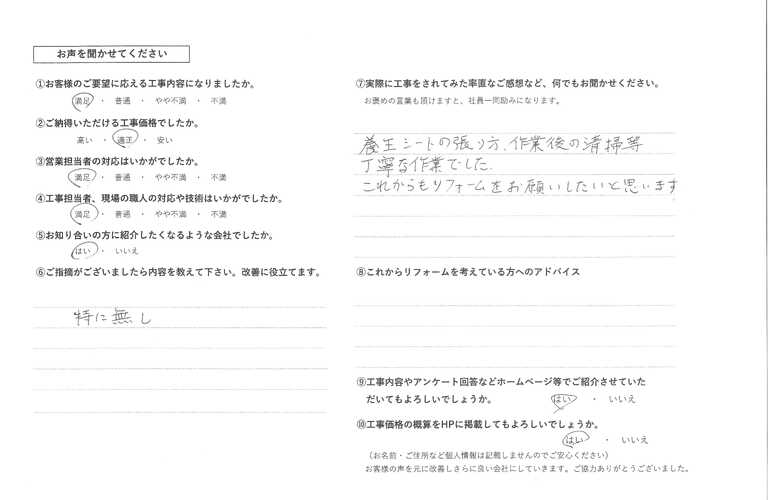 お声を聞かせてください
①お客様のご要望に応える工事内容になりましたか。
満足 ・ 普通 ・ やや不満 ・ 不満
②ご納得いただける工事価格でしたか。
高い ・ 適正 ・ 安い
③営業担当者の対応はいかがでしたか。
満足 ・ 普通 ・ やや不満 ・ 不満
④工事担当者、現場の職人の対応や技術はいかがでしたか。
満足 ・ 普通 ・ やや不満 ・ 不満
⑤お知り合いの方に紹介したくなるような会社でしたか。
はい ・ いいえ
⑥ご指摘がございましたら内容を教えて下さい。改善に役立てます。
特に無し
⑦実際に工事をされてみた率直なご感想など、何でもお聞かせください。
お褒めの言葉も頂けますと、社員一同励みになります。
養生シートの張り方、作業後の清掃等
丁寧な作業でした。
これからもリフォームをお願いしたいと思います
⑧これからリフォームを考えている方へのアドバイス
⑨工事内容やアンケート回答などホームページ等でご紹介させていた
だいてもよろしいでしょうか。 はい ・ いいえ
⑩工事価格の概算をHPに掲載してもよろしいでしょうか。
はい ・ いいえ
（お名前・ご住所など個人情報は記載しませんのでご安心ください）
お客様の声を元に改善しさらに良い会社にしていきます。ご協力ありがとうございました。